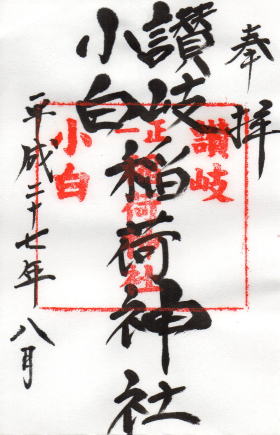 奉拝
讃岐稲荷神社
小白
平成二十七年八月
讃岐
正一
稲荷神社
小白